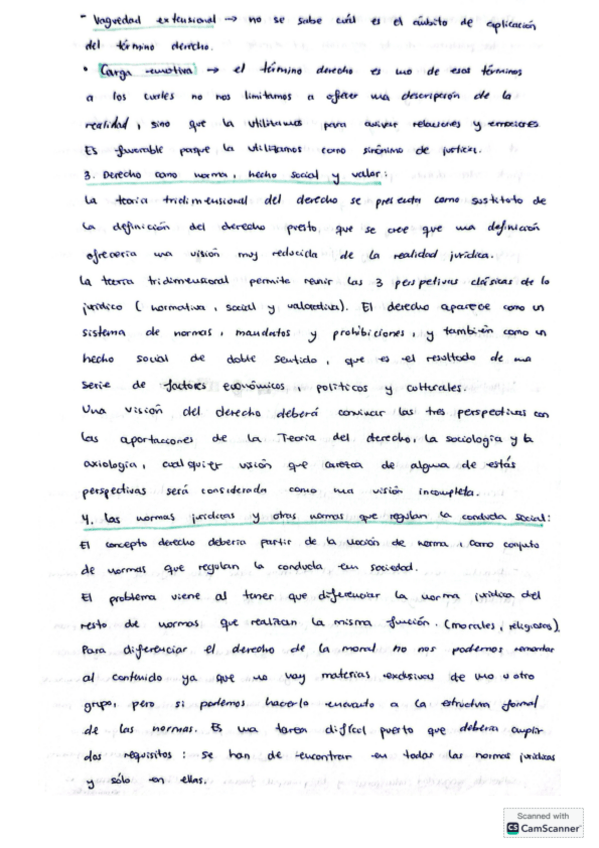 - Vaguedad extensional → no se sabe cuál es el ámbito de aplicación
del término derecho.
• Carga emotiva → el término derecho es uno de esos términos
a los cuales no nos limitamos a ofrecer una descripción de la
realidad, sino que la utilizamos para avivar relaciones y emociones.
Es favorable porque la utilizamos como sinónimo de justicia.
3. Derecho como norma, hecho social y valor:
La teoría tridimensional del derecho se presenta como sustituto de
la definición del derecho puesto, que se cree que una definición
ofrecería una visión muy reducida de la realidad jurídica.
La teoría tridimensional permite reunir las 3 perspetivas clásicas de lo
jurídico (normativa, social y valorativa). El derecho aparece como un
sistema de normas, mandatos y prohibiciones, y también como un
hecho social de doble sentido, que es el resultado de una
serie de factores económicos, políticos y culturales.
Una visión del derecho deberá conviuar las tres perspectivas con
las aportaciones de la Teoría del derecho, la sociología y la
axiología, cualquier visión que carezca de alguna de estás
perspectivas será considerada como una visión incompleta.
4. Las normas jurídicas y otras normas que regulan la conducta social:
El concepto derecho debería partir de la noción de norma, como conjuto
de normas que regulan la conducta en sociedad.
El problema viene al tener que diferenciar la norma jurídica del
resto de normas que realizan la misma función. (morales, religiosas)
Para diferenciar el derecho de la moral no nos podemos remontar
al contenido ya que no hay materias exclusivas de uno u otro
grupo, pero si podemos hacerlo encuanto a la estructura formal
de las normas. Es una tarea difícil puesto que debería cumplir
dos requisitos: se han de encontrar en todas las normas jurídicas
y sólo en ellas.
Scanned with
CS CamScanner